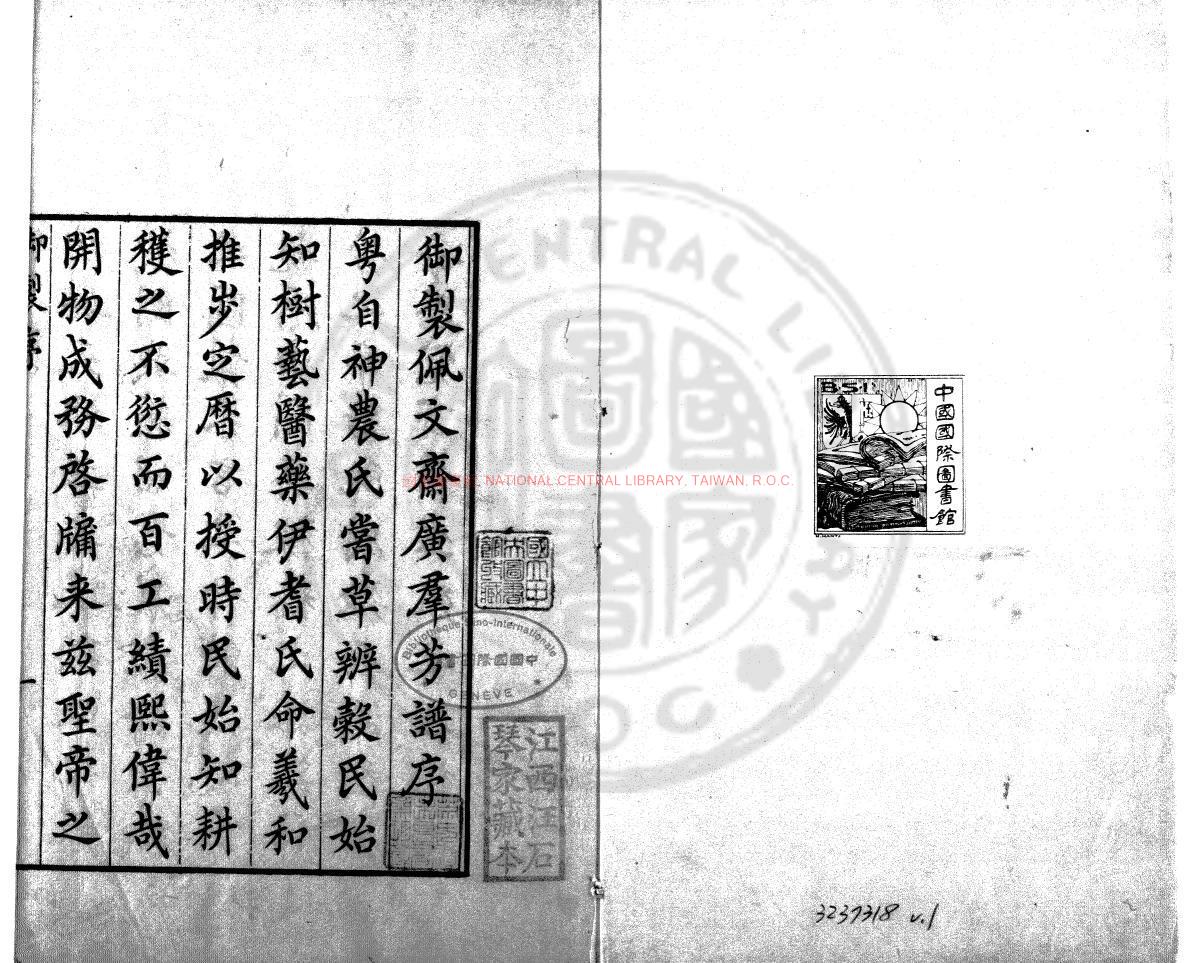 御製佩文齋廣羣芳譜序
粤自神農氏嘗草辨穀民始
知樹藝醫藥伊耆氏命羲和
推步定曆以授時民始知耕
穫之不愆而百工績熙偉哉
開物成務啓牖来兹聖帝之
御製序
一
國立中
央圖書
館攷藏
Bibliothèque Sino-Internationale
中國國際圖書館
GENÈVE
江西汪石
琴家藏本
B·S·I·
中國國際圖書館
3237318 v.1
NATIONAL CENTRAL LIBRARY, TAIWAN, R.O.C.
CENTRAL LIBRARY
R.O.C